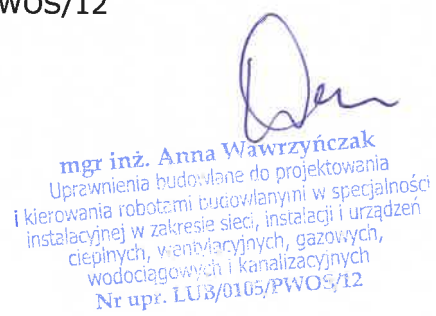 WOS/12
mgr inż. Anna Wawrzyńczak
Uprawnienia budowlane do projektowania
i kierowania robotami budowlanymi w specjalności
instalacyjnej w zakresie sieci, instalacji i urządzeń
cieplnych, wentylacyjnych, gazowych,
wodociągowych i kanalizacyjnych
Nr upr. LUB/0105/PWOS/12